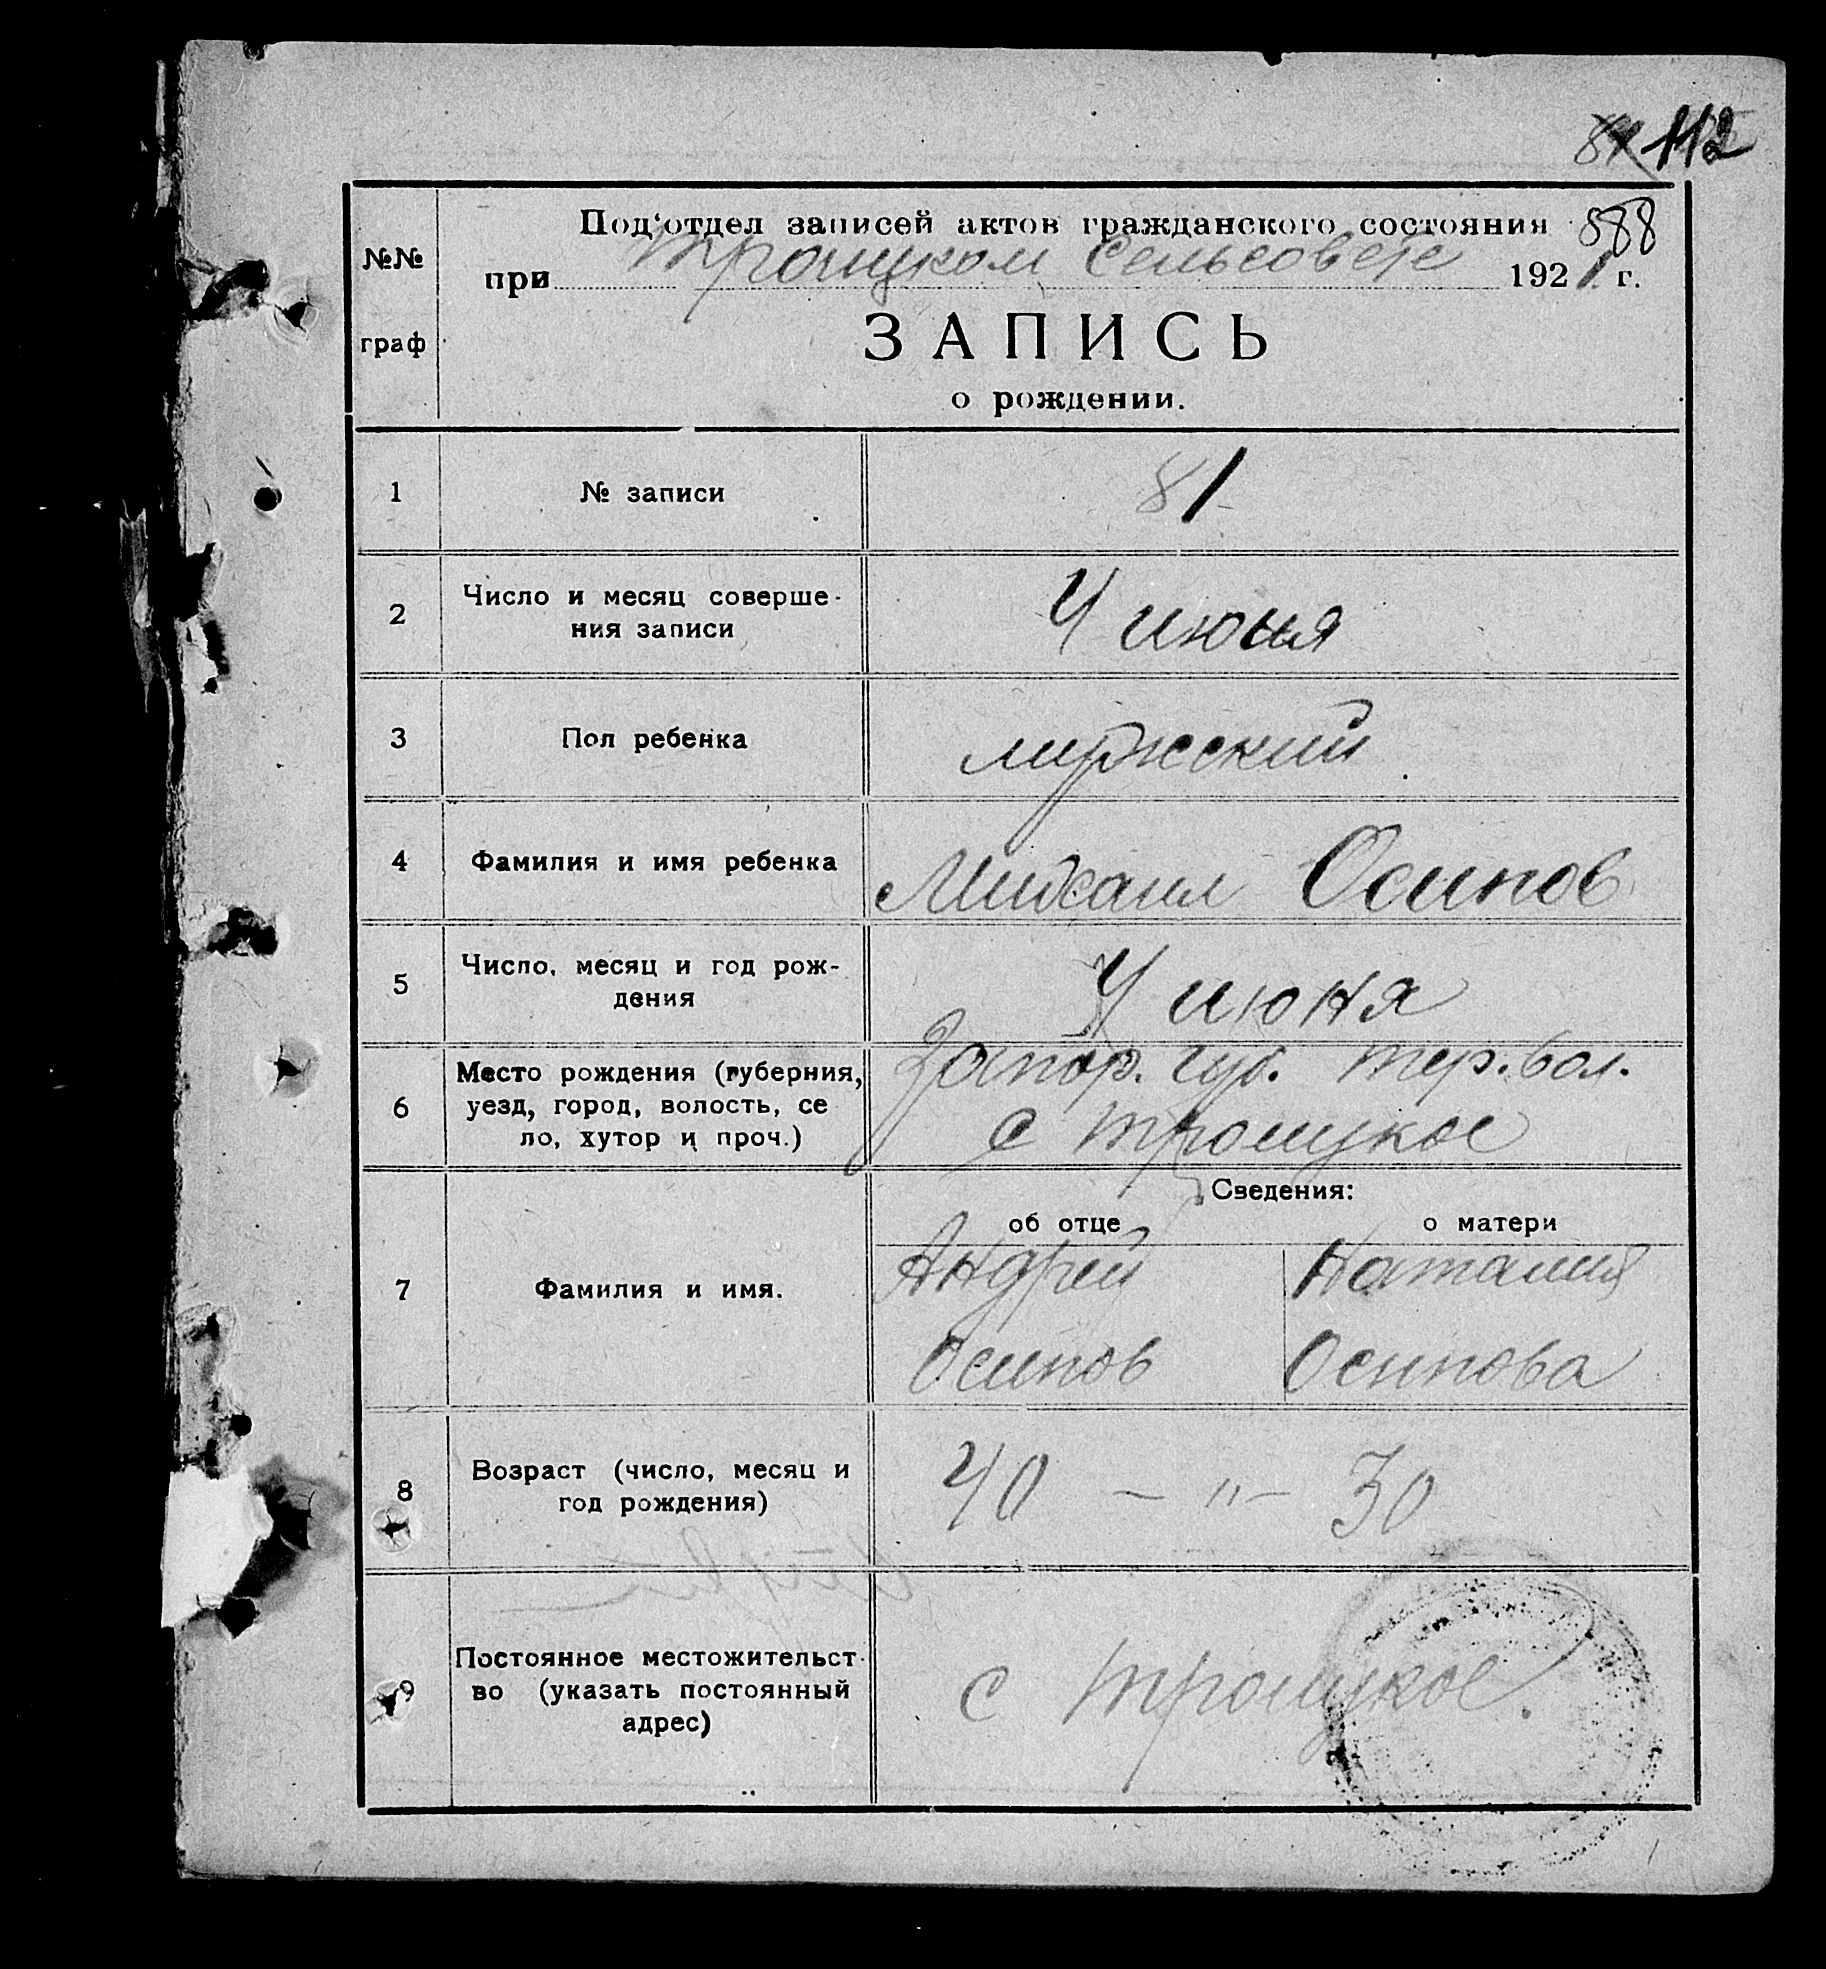 112
588
Под‘отдел записей актов гражданского состояния
при Троицком Сельсовете 1921 г.
№№
граф
ЗАПИСЬ
о рождении.
1 № записи 81
2 Число и месяц соверше-
ния записи
4 июня
3 Пол ребенка мужеский
4 Фамилия и имя ребенка Михаил Осипов
5 Число, месяц и год рож-
дения
4 июня
6 Место рождения (губерния,
уезд, город, волость, се
ло, хутор и проч.)
Запор. губ. тер. вол.
с Троицкое
Сведения:
об отце о матери
7 Фамилия и имя.
Андрей Наталия
Осипов Осипова
8 Возраст (число, месяц и
год рождения)
40 — " — 30
9 Постоянное местожительст-
во (указать постоянный
адрес)
с Троицкое.